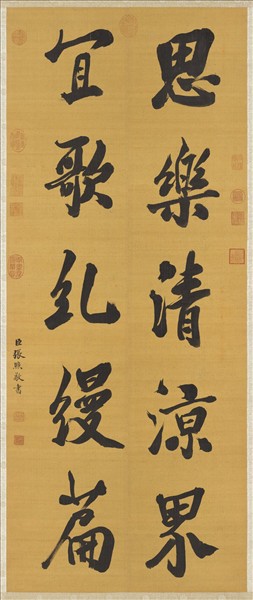 思樂清涼界
宜歌糺縵篇
臣張照敬書